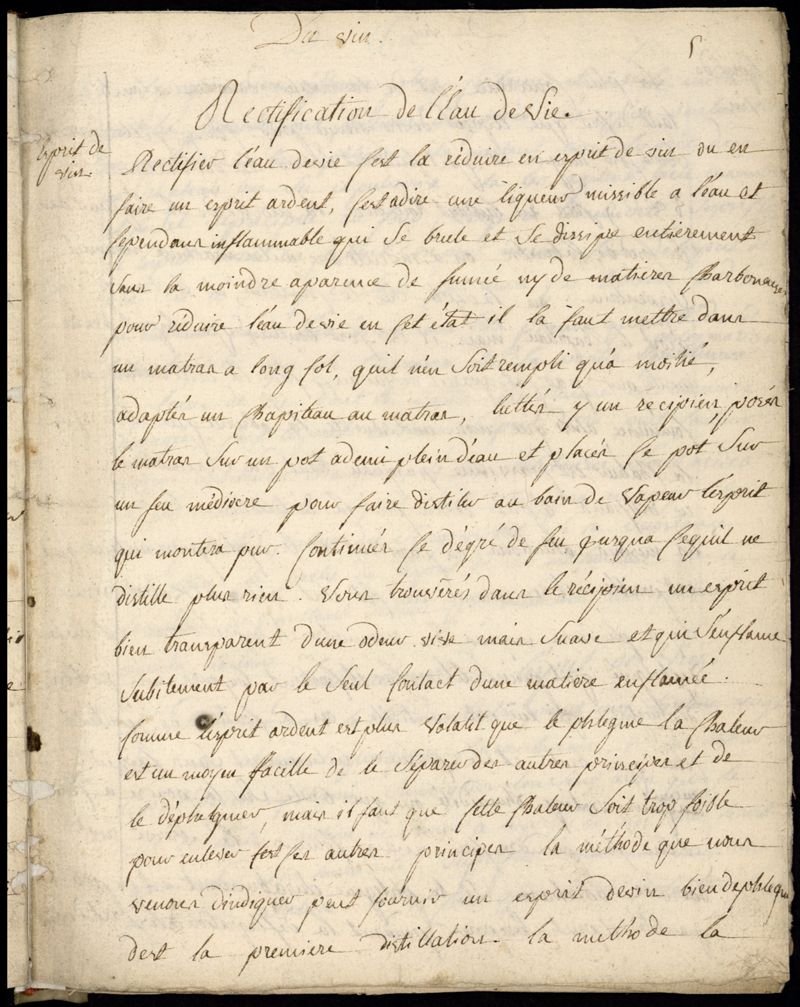 Du vin.
5
Rectification de l'Eau de Vie.
Esprit de
vin.
Rectifier l'eau de vie s'est la réduire en esprit de vin ou en
faire un esprit ardent, s'est adire une liqueur missible a l'eau et
sependant inflammable qui se brule et se dissipe entierement
sans la moindre aparence de fumée ny de matieres charboneuses
pour réduire l'eau de vie en set état il la faut mettre dans
un matras a long sol, quil n'en soit rempli qu'a moitié,
adaptés un chapiteau au matras, luttés y un recipien, posés
le matras sur un pot a demi plein d'eau et placés se pot sur
un feu médiocre pour faire distiler au bain de vapeur l'esprit
qui montera pur. Continués se dégré de feu jusqua sequil ne
distille plus rien. Vous trouverés dans le récipien un esprit
bien transparent d'une odeur vive mais suave et qui s'enflame
subitement par le seul contact d'une matiere enflamée.
Comme l'esprit ardent est plus volatil que le phlegme la chaleur
est un moyen facille de le séparer des autres principes et de
le déphlegmer, mais il faut que sette chaleur soit trop foible
pour enlever ses autres principes la méthode que nous
venons d'indiquer peut fournir un esprit de vin bien dephlegmé
des la premiere distillation. la methode de la